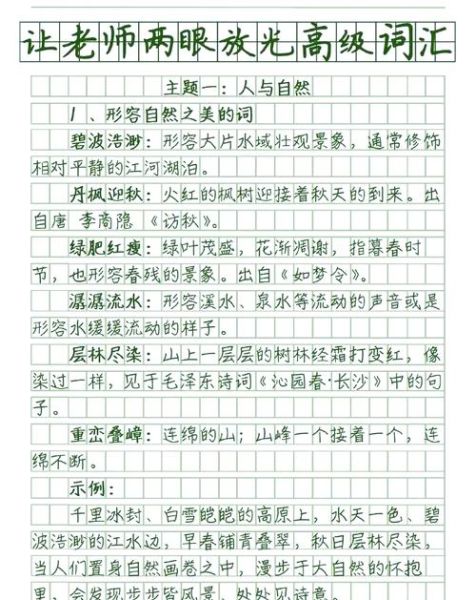 让老师两眼放光高级词汇
主题一：人与自然
1、形容自然之美的词
碧波浩渺：形容大片水域壮观景象，通常修饰
相对平静的江河湖泊。
丹枫迎秋：火红的枫树迎接着秋天的到来。出
自唐 李商隐 《访秋》。
绿肥红瘦：绿叶茂盛，花渐凋谢，指暮春时
节，也形容春残的景象。出自《如梦令》。
潺潺流水：形容溪水、泉水等流动的声音或是
形容水缓缓流动的样子。
层林尽染：山上一层层的树林经霜打变红，像
染过一样，见于毛泽东诗词《沁园春·长沙》中的句
子。
重峦叠嶂：连绵的山；山峰一个接着一个，连
绵不断。
示例：
千里冰封、白雪皑皑的高原上，水天一色、碧
波浩渺的江水边，早春铺青叠翠，秋日层林尽染。
当人们置身自然画卷之中，漫步于大自然的怀抱
里，会发现步步皆风景，处处见诗意。